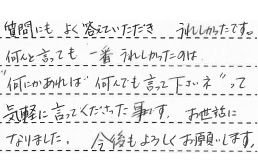 質問にも よく答えていただき うれしかったです。
何んと言っても 一番 うれしかったのは
"何にかあれば 何んでも言って下さいネ" って
気軽に言ってくださった事です。お世話に
なりました。 今後もよろしくお願いします。